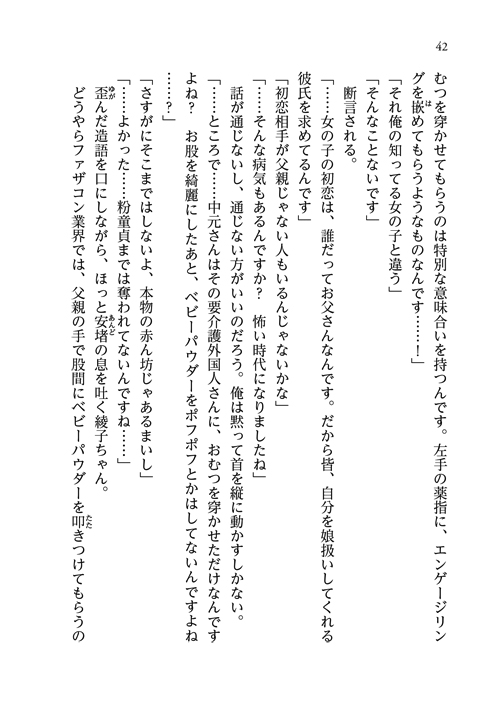 42
むつを穿かせてもらうのは特別な意味合いを持つんです。左手の薬指に、エンゲージリン
グを嵌めてもらうようなものなんです……！」
「それ俺の知ってる女の子と違う」
「そんなことないです」
断言される。
「……女の子の初恋は、誰だってお父さんなんです。だから皆、自分を娘扱いしてくれる
彼氏を求めてるんです」
「初恋相手が父親じゃない人もいるんじゃないかな」
「……そんな病気もあるんですか？　怖い時代になりましたね」
話が通じないし、通じない方がいいのだろう。俺は黙って首を縦に動かすしかない。
「……ところで……中元さんはその要介護外国人さんに、おむつを穿かせただけなんです
よね？　お股を綺麗にしたあと、ベビーパウダーをポフポフとかはしてないんですよね
……？」
「さすがにそこまではしないよ、本物の赤ん坊じゃあるまいし」
「……よかった……粉童貞までは奪われてないんですね……」
歪んだ造語を口にしながら、ほっと安堵の息を吐く綾子ちゃん。
どうやらファザコン業界では、父親の手で股間にベビーパウダーを叩きつけてもらうの